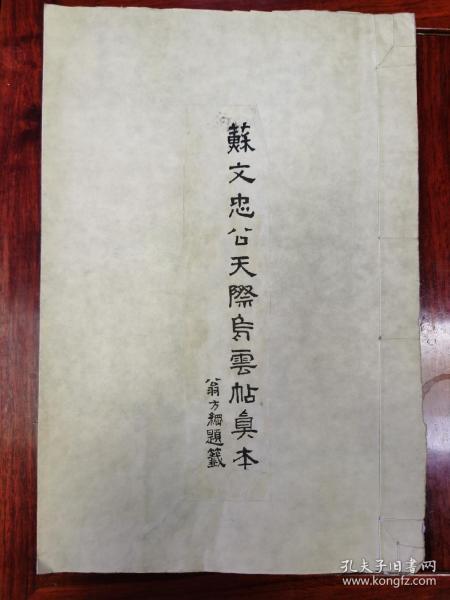 蘇文忠公天際烏雲帖真本
翁方綱題籤
孔夫子旧书网
www.kongfz.com